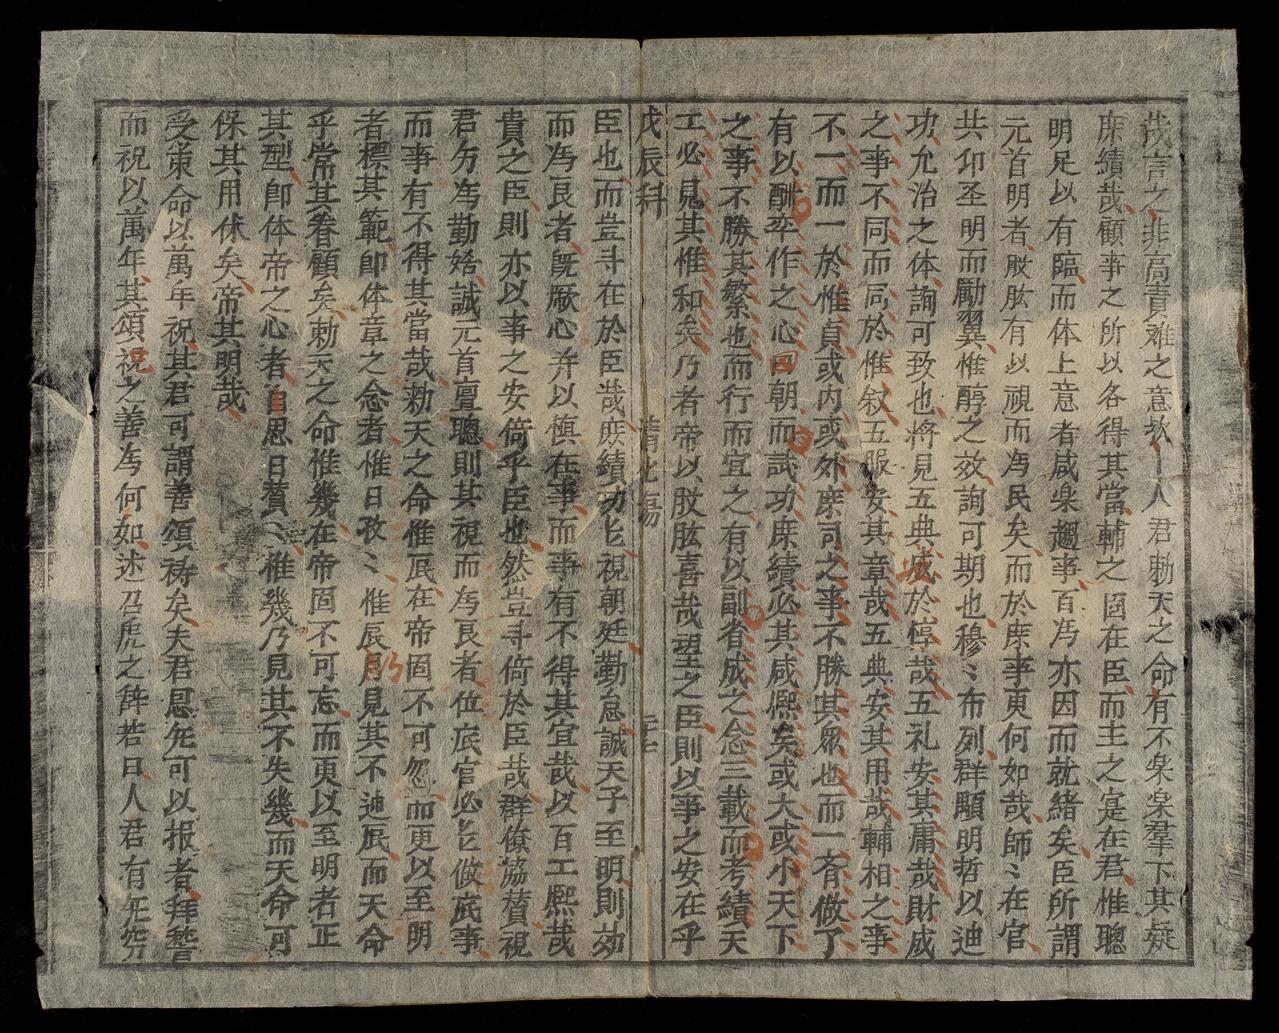 哉言之非高責难之意欤人君勅天之命有不枲枲羣下其疑
庶績哉顧事之所以各得其當輔之固在臣而主之寔在君惟聰
明足以有臨而体上意者咸枲趨事百爲亦因而就緒矣臣所謂
元首明者股肱有以視而爲民矣而於庶事更何如哉師〻在官
共仰圣明而勵翼惟醇之效詢可期也穆〻布列群顒明哲以迪
功允治之体詢可致也將見五典咸於惇哉五礼安其庸哉財成
之事不同而同於惟叙五服安其章哉五典安其用哉輔相之事
不一而一於惟貞或内或外庶司之事不勝其衆也而一斉倣了
有以酬率作之心曰朝而試功庶績必其咸熙矣或大或小天下
之事不勝其繁也而行而宜之有以副省成之念三載而考績天
工必見其惟和矣乃者帝以股肱喜哉望之臣則以事之安在乎
戊辰科 清化場
臣也而豈斗在於臣哉庶績功ヒ視朝廷勤怠誠天子至明則効
而爲良者既厭心并以慎在事而事有不得其宜哉以百工熙哉
貴之臣則亦以事之安倚乎臣也然豈斗倚於臣哉群僚協賛視
君为爲勤㛿誠元首亶聰則其視而爲良者位底官必ヒ倣底事
而事有不得其當哉勅天之命惟民在帝固不可忽而更以至明
者標其範卽体章之念者惟日孜〻惟辰見其不迪民而天命
乎常其眷顧矣勅天之命惟幾在帝固不可忘而更以至明者正
其型卽体帝之心者自思日賛〻惟幾乃見其不失幾而天命可
保其用休矣帝其明哉
受策命以萬年祝其君可謂善頌祷矣夫君恩旡可以报者拜䭫
而祝以萬年其頌祝之善爲何如述召虎之辞若曰人君有旡穷